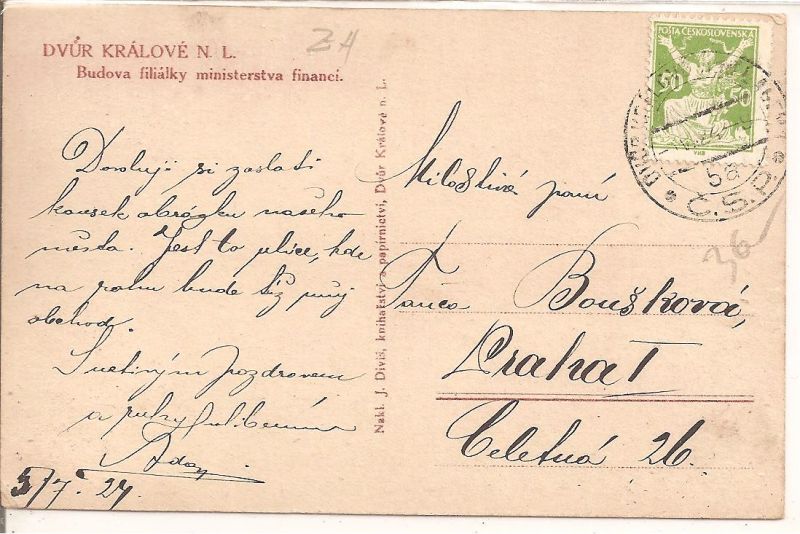 DVŮR KRÁLOVÉ N. L.
Budova filiálky ministerstva financí.
Dovoluji si zaslati
kousek obrázku našeho
města. Jest to ulice, kde
na rohu bude též můj
obchod.
S uctivým pozdravem
a ruky políbením
5/7. 24.
Nakl. J. Diviš, knihařství a papírnictví, Dvůr Králové n. L.
ZH
POŠTA ČESKOSLOVENSKÁ
50 50
5a
Č.S.P.
36
Milostivá paní
Boušková,
Praha I
Celetná 26.